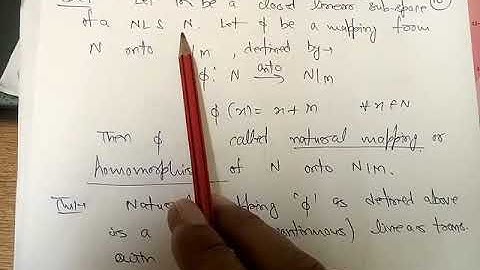 Let m be a closed linear sub-space
of a NLS N. Let ϕ be a mapping from
N onto N/m, defined by→
ϕ: N onto⟶ N/m
ϕ(x) = x + m ∀ x ∈ N
Then ϕ called natural mapping or
homomorphis of N onto N/M.
Thm→ Natur ing 'ϕ' as defined above
is a ontinuous) linear trans.
with